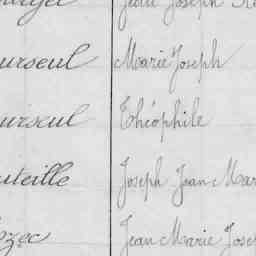 Jean Joseph
urseul Marie Joseph
urseul Théophile
uteille Joseph Jean Mar
ozec Jean Marie Jose